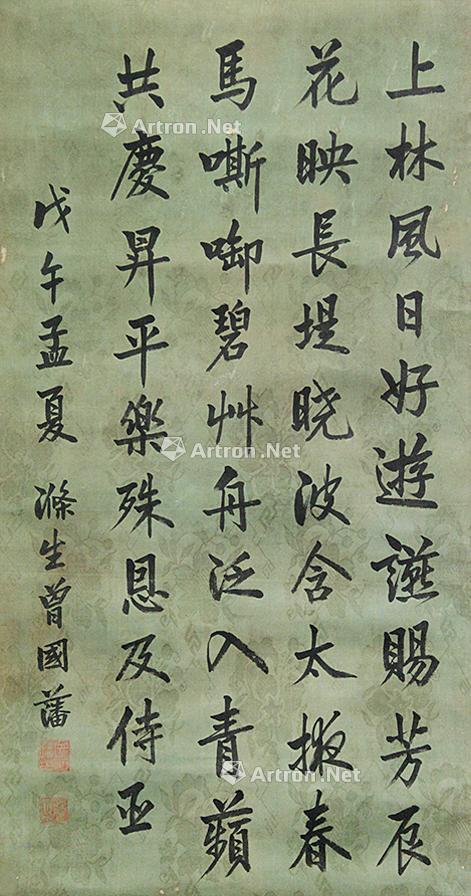 上林風日好遊讌賜芳辰
花映長堤晓波含太掖春
馬嘶啣碧艸舟泛入青蘋
共慶昇平樂殊恩及侍臣
戊午孟夏 滌生曾國藩
Artron.Net
Artron.Net
Artron.Net